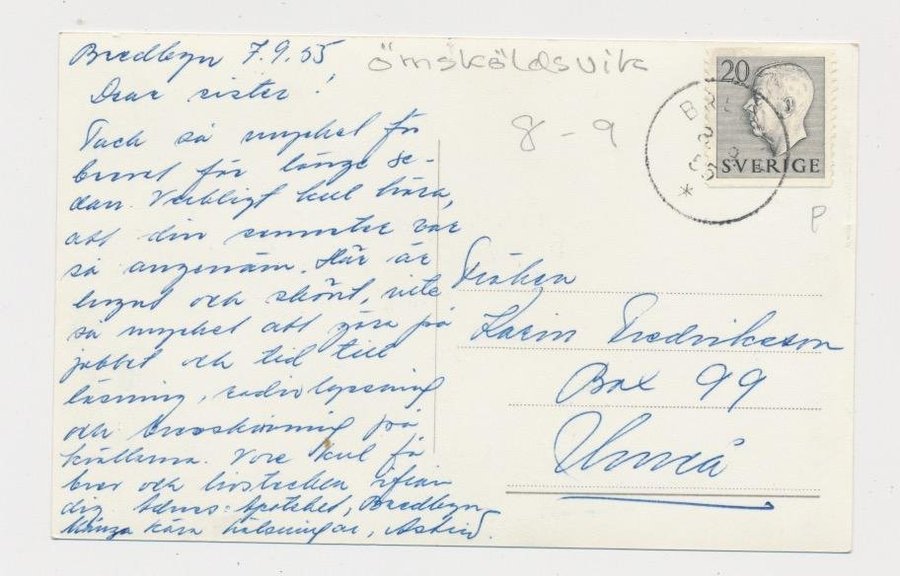 Bredbyn 7.9.55
Örnsköldsvik
Dear sister!
Tack så mycket för
brevet för länge se-
dan. Verkligt kul höra,
att din semester var
så angenäm. Här är
lugnt och skönt, inte
så mycket att göra på
jobbet och tid till
läsning, radiolyssning
och brevskrivning på
kvällarna. Vore kul få
brev och livstecken ifrån
dig. Adress: Apoteket, Bredbyn
Många kära hälsningar, Astrid.
8-9
20
SVERIGE
BRE
P
Fröken
Karin Fredriksson
Box 99
Umeå